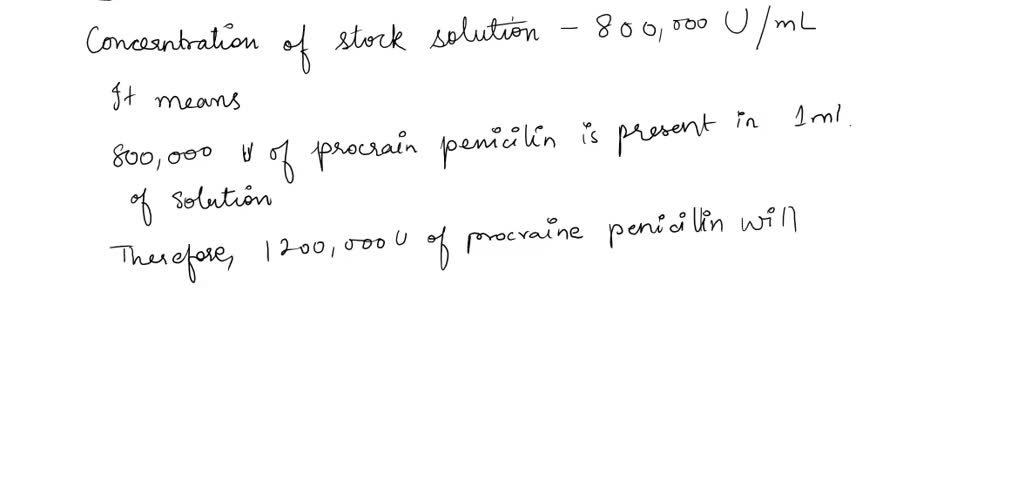 Concentration of stock solution - 800,000 U/mL
It means
800,000 U of procrain penicilin is present in 1ml.
of solution
Therefore, 1200,000 U of procraine penicillin will